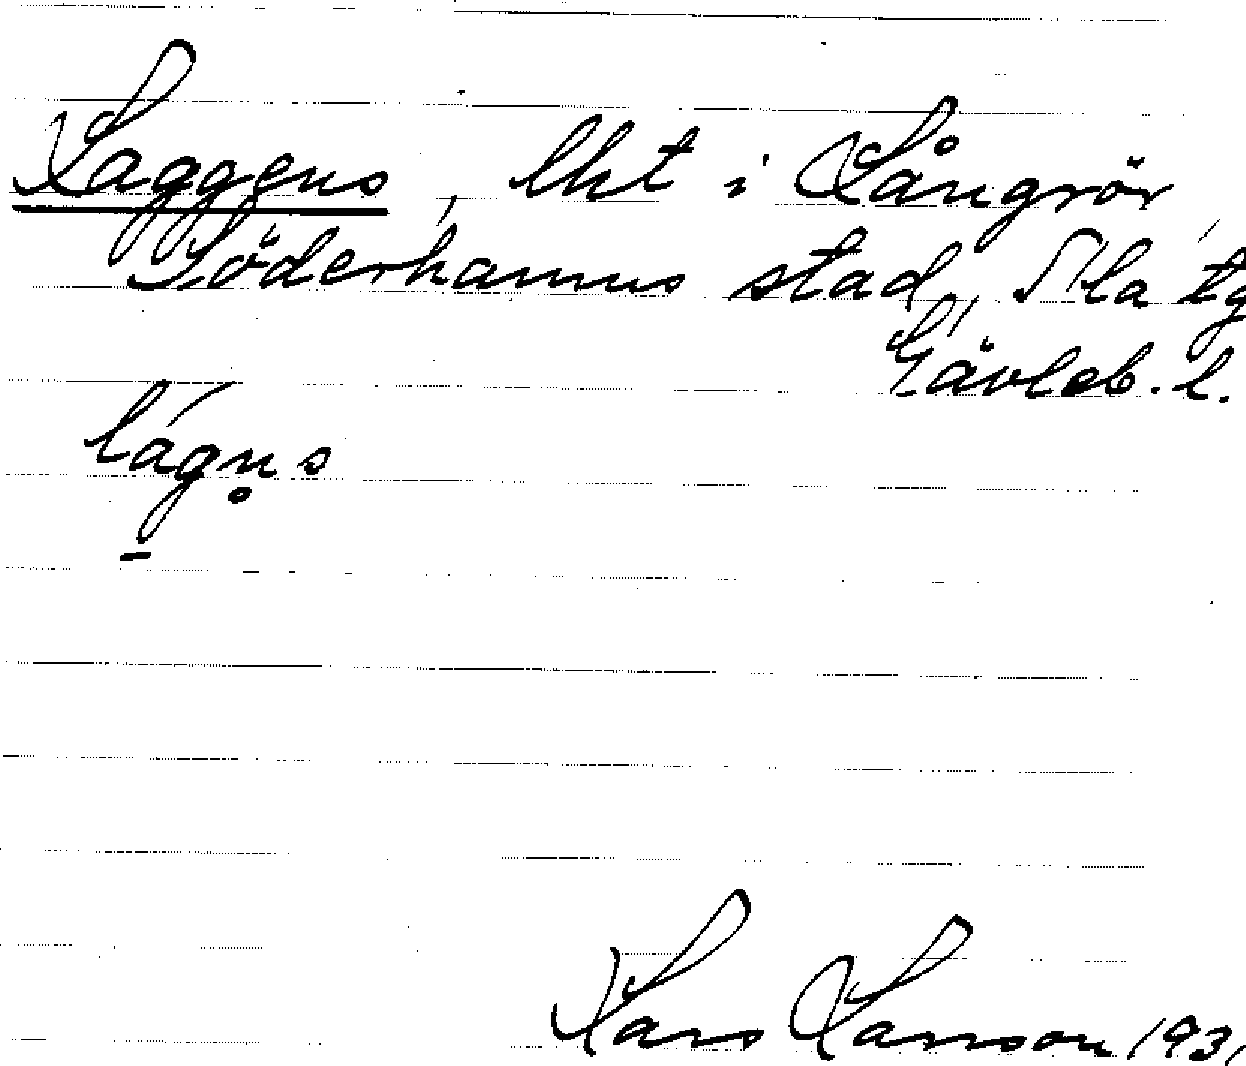 Laggens, lht i Långrör,
Söderhamns stad, Ala tg
Gävleb. l.
lágn̥s
Lars Larsson 1931